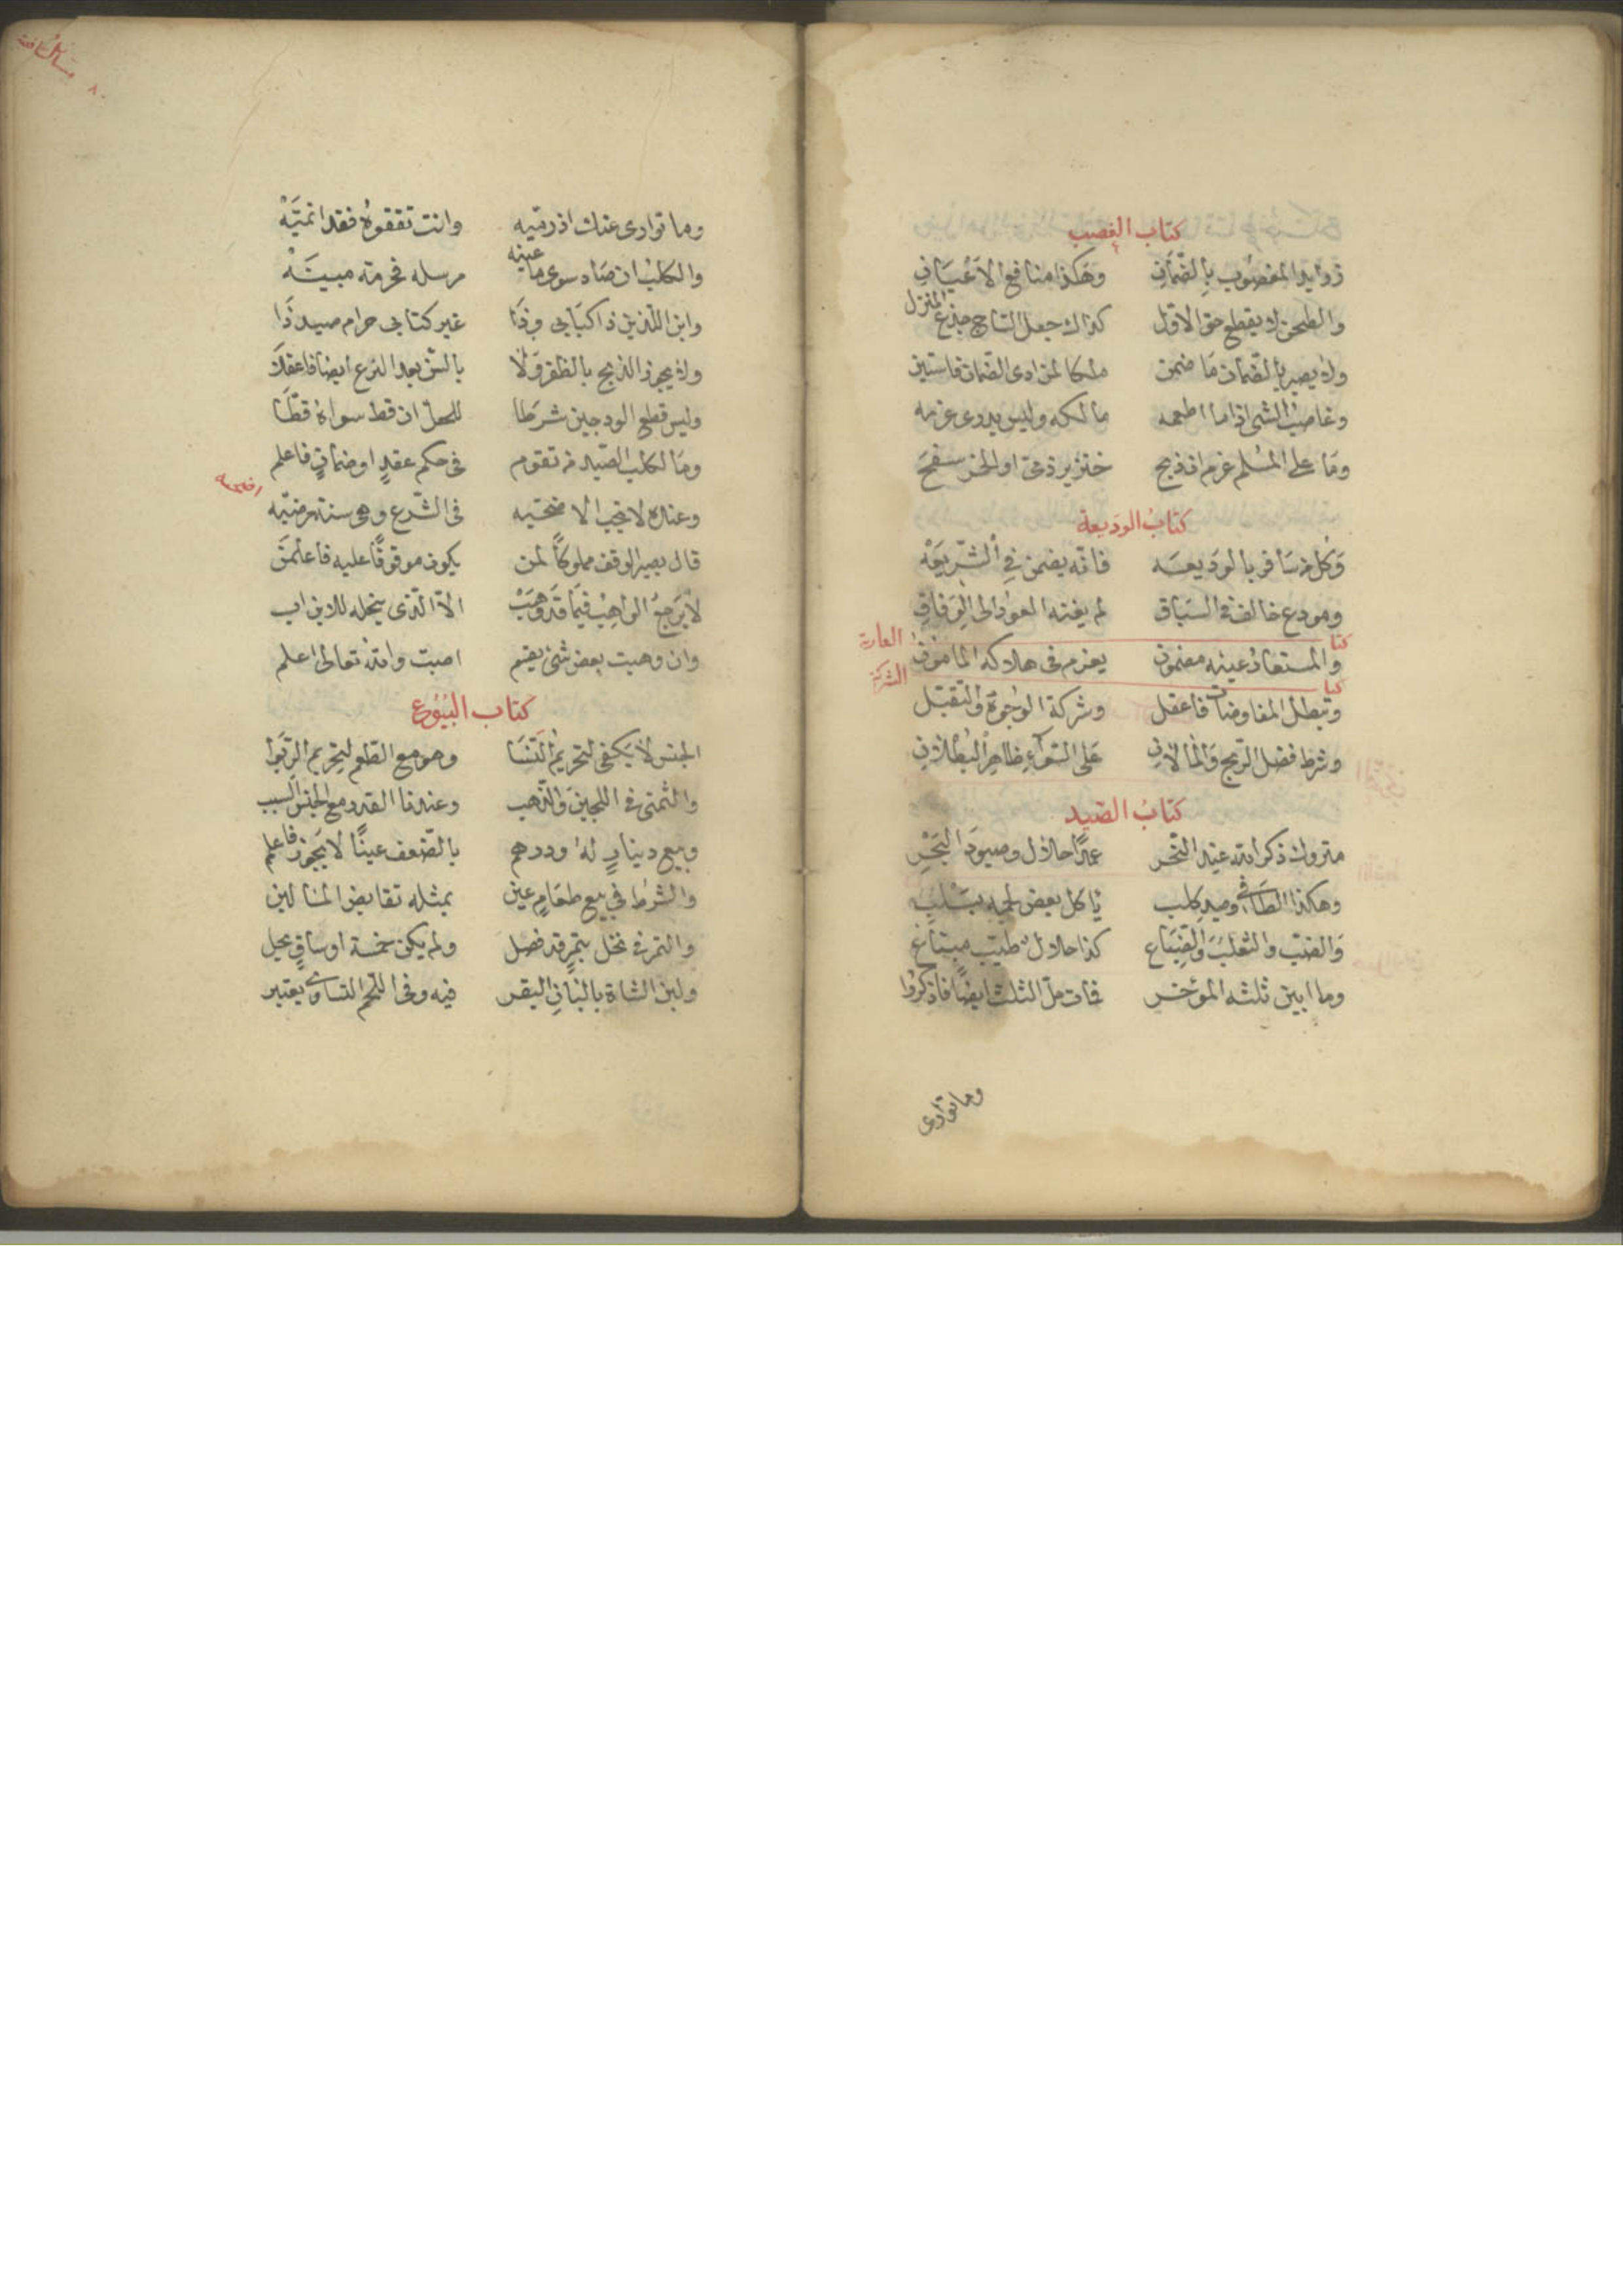 كتاب الغصب
زوايد المغصوب بالضمان وهكذا منافع الاعيان
والطحن لا يقطع حق الاول كذاك جعل الساج جذع المنزل
ولا يصير بالضمان ما ضمن ملكا لمن ادى الضمان فاستبن
وغاصب الشي اذا ما اطعمه مالكه وليس يدرى غرمه
وما على المسلم غرم ان ذبح خنزير ذمى او الخمر سفح
كتاب الوديعة
وكل من سافر بالوديعه فانه يضمن في الشريعه
ومودع خالف في السباق لم يغنه العود الى الوفاق
كتا العارية
والمستعار عينه مضمون يغرم في هلاكه المامون
كتا الشركة
وتبطل المفاوضات فاعقل وشركة الوجوه والتقبل
وشرط فضل الربح والمالان على السواء ظاهر البطلان
كتاب الصيد
متروك ذكر الله عند النحر عمدا حلال وصيود البحر
وهكذا الطافي وصيد كلب ياكل بعض لحمه بسلب
والضب والثعلب والضباع كذا حلال طيب مبتاع
وما ابين ثلثه الموخر فات حل الثلث ايضا فاذكروا
وما توارى
مسائل الشافعية
٨٠
وما توارى عنك اذ رميه وانت تقفوه فقد انميه
والكلب ان صاد سوى ما عينه مرسله فحرمته مبينه
وابن اللذين ذا كتابي وذا غير كتابي حرام صيد ذا
ولا يجوز الذبح بالظفر ولا بالسن بعد النزع ايضا فاعقلا
وليس قطع الودجين شرطا للحل ان قط سواه قطا
وما لكلب الصيد من تقوم في حكم عقد او ضمان فاعلم
اضحية
وعنده لا تجب الاضحيه في الشرع وهي سنة مرضيه
قال يصير الوقف مملوكا لمن يكون موقوفا عليه فاعلمن
لا يرجع الواهب فيما قد وهب الا الذي ينحله للابن اب
وان وهبت بعض شئ يقسم اصبت والله تعالى اعلم
كتاب البيوع
الجنس لا يكفى لتحريم النسا وهو مع الطعم لتحريم الربوا
والثمنى في اللجين والذهب وعندنا القدر مع الجنس السبب
وبيع دينار له ودرهم بالضعف عينا لا يجوز فاعلم
والشرط في بيع طعام عين بمثله تقابض المالين
والتمر في نخل بتمر قد فصل ولم يكن خمسة اوساق يحل
ولبن الشاة بالبان البقر فيه وفي اللحم التساوى يعتبر